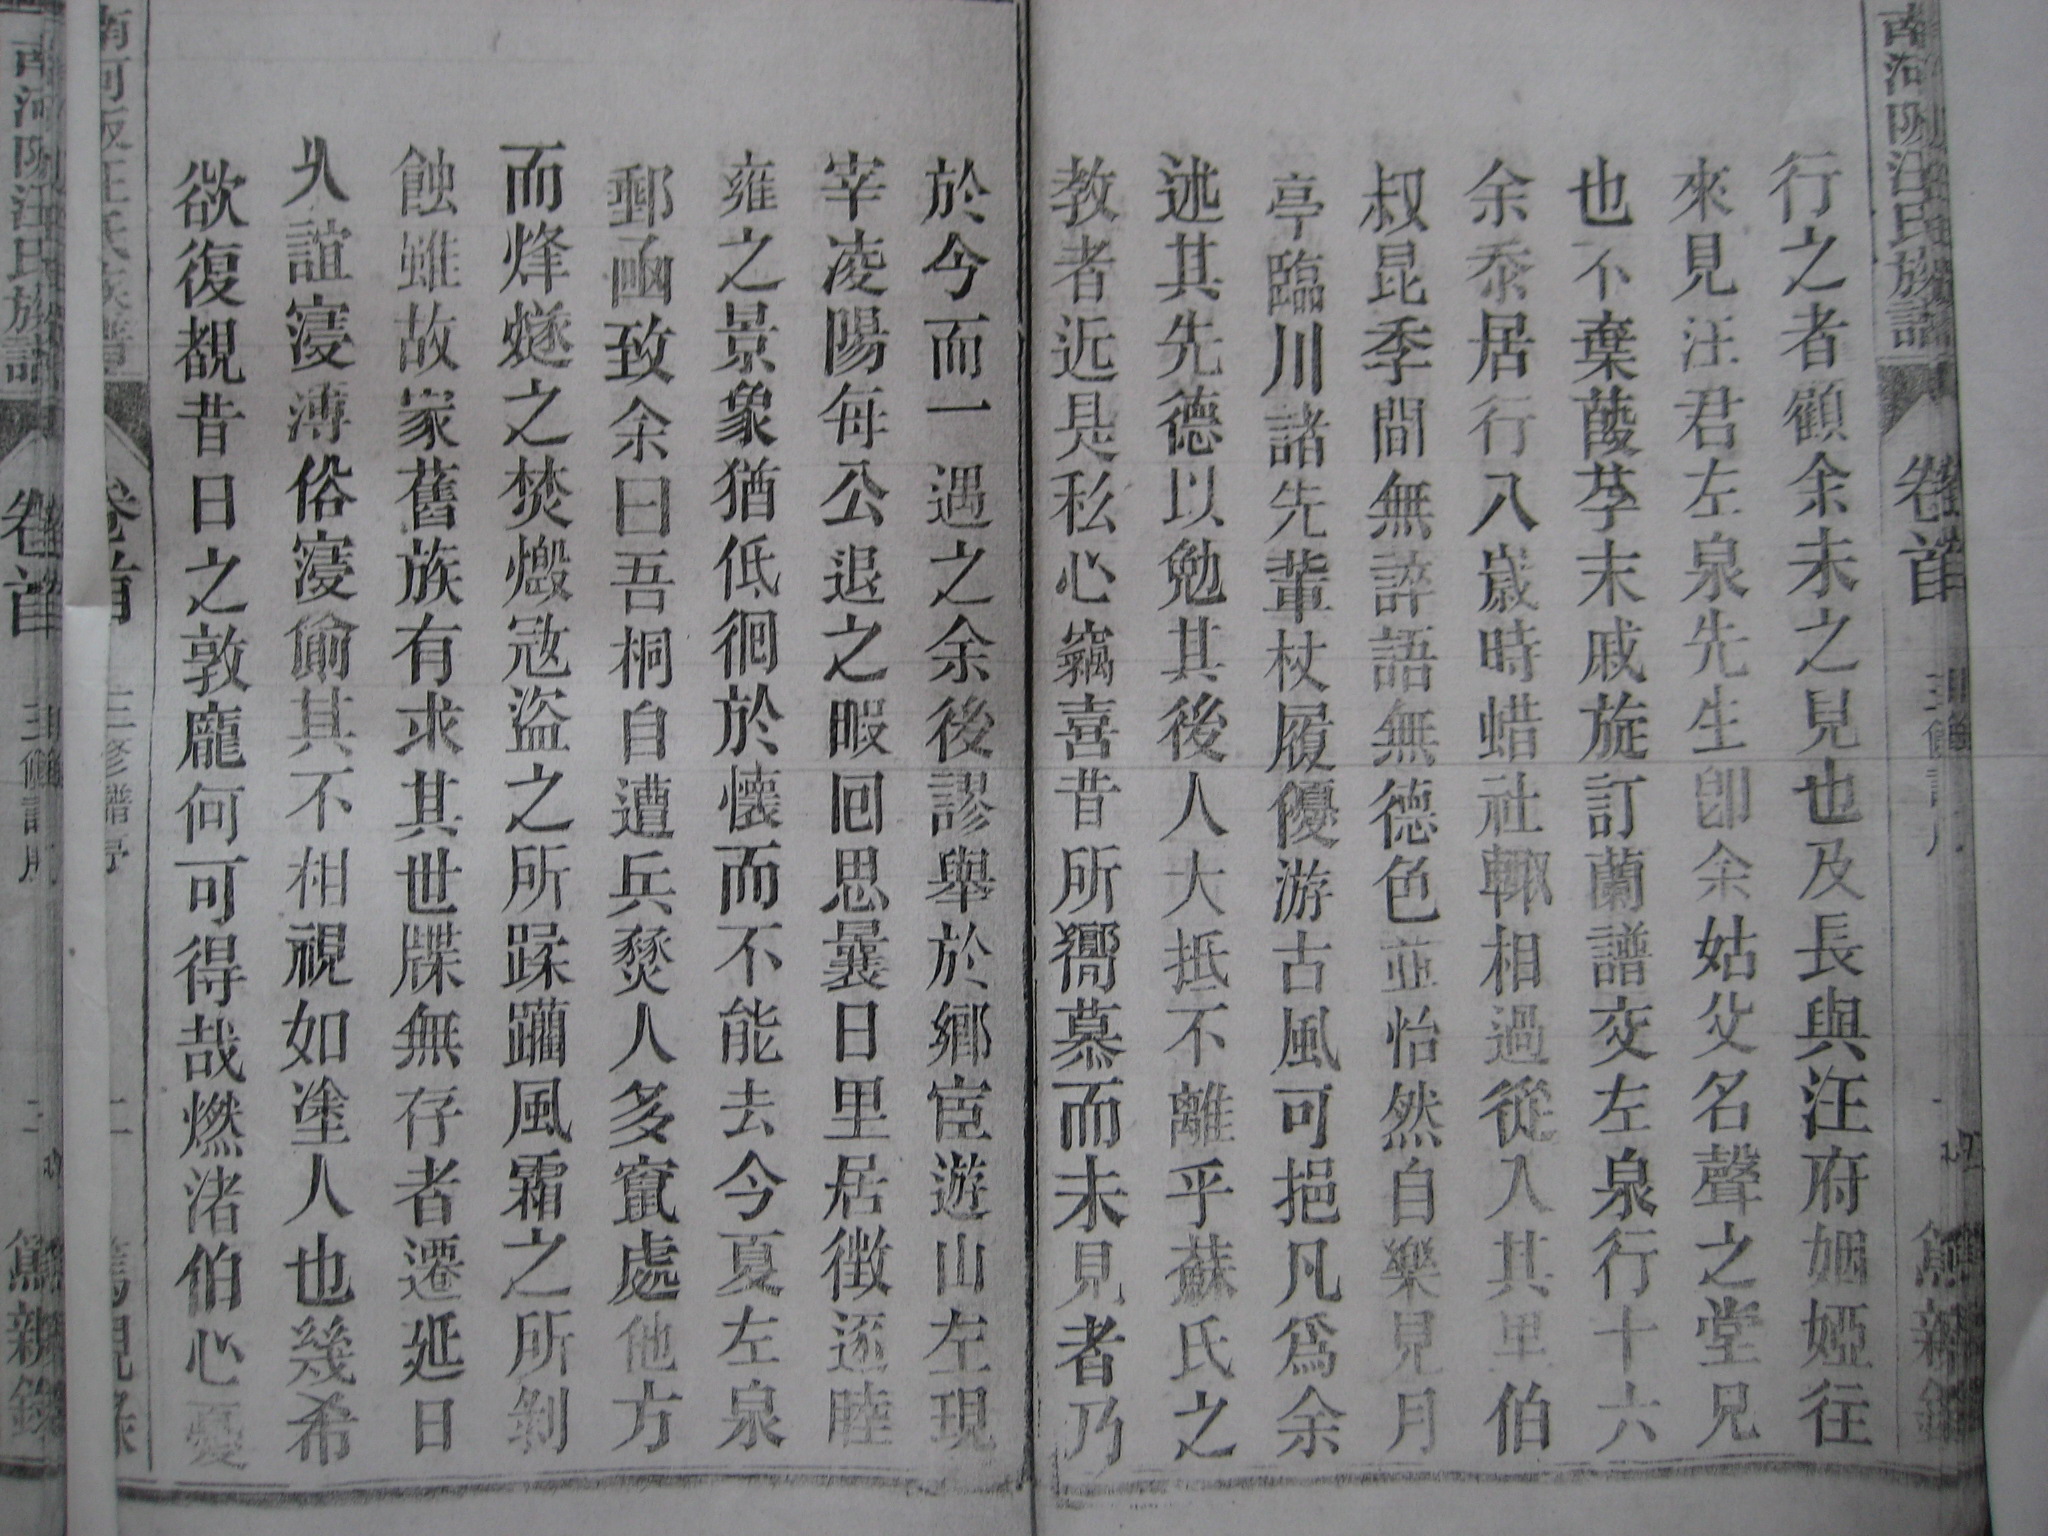 行之者顧余未之見也及長與汪府姻婭往
來見汪君左泉先生卽余姑父名聲之堂兄
也不棄葭莩末戚旋訂蘭譜交左泉行十六
余忝居行八歲時蜡社輒相過從入其里伯
叔昆季間無誶語無德色並怡然自樂見月
亭臨川諸先輩杖履優游古風可挹凡爲余
述其先德以勉其後人大抵不離乎蘇氏之
教者近是私心竊喜昔所嚮慕而未見者乃
於今而一遇之余後謬舉於鄉宦遊山左現
宰凌陽每公退之暇回思曩日里居徵逐睦
雍之景象猶低徊於懷而不能去今夏左泉
郵函致余曰吾桐自遭兵燹人多竄處他方
而烽燧之焚燬寇盜之所蹂躪風霜之所剝
蝕雖故家舊族有求其世牒無存者遷延日
久誼寖薄俗寖偷其不相視如塗人也幾希
欲復覩昔日之敦龐何可得哉燃渚伯心憂
卷首